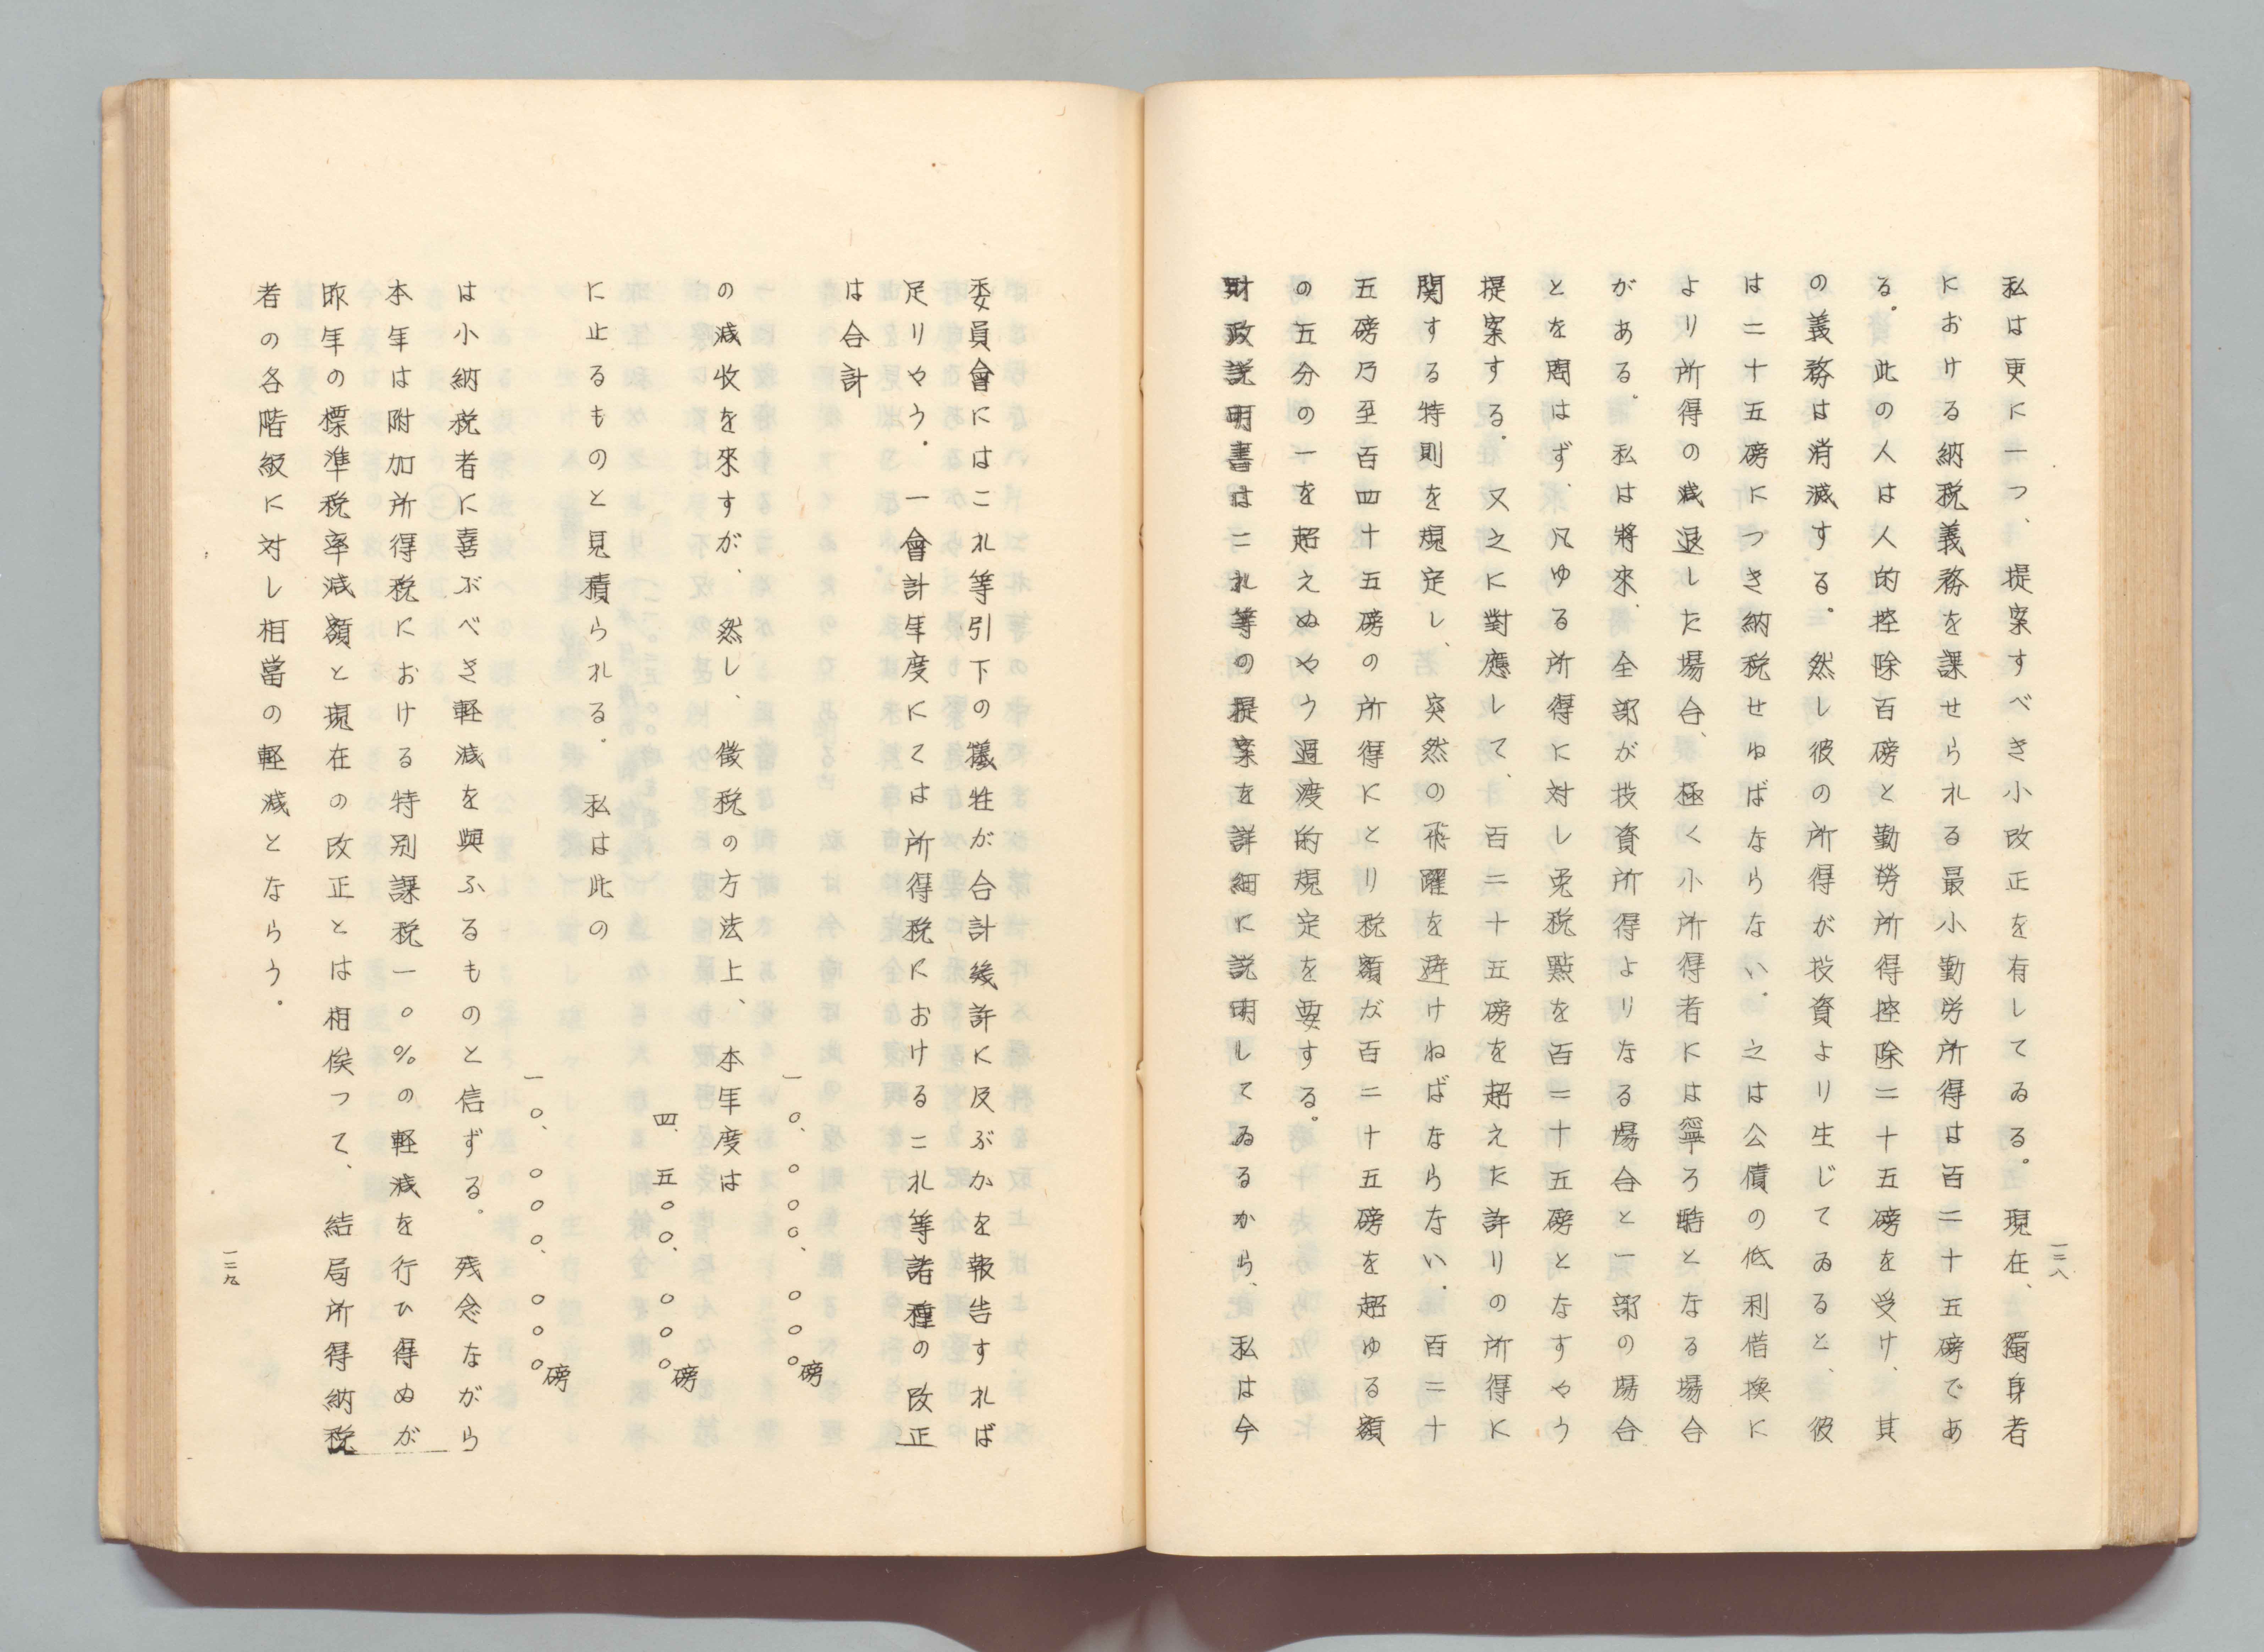 一二八
私は更に一つ、提案すべき小改正を有してゐる。現在、獨身者
における納税義務を課せられる最小勤労所得は百二十五磅であ
る。此の人は人的控除百磅と勤勞所得控除二十五磅を受け、其
の義務は消滅する。然し彼の所得が投資より生じてゐると、彼
は二十五磅につき納税せねばならない。之は公債の低利借換に
より所得の減退した場合、極く小所得者には寧ろ酷となる場合
がある。私は將來、全部が投資所得よりなる場合と一部の場合
とを問はず、凡ゆる所得に対し免税點を百二十五磅となすやう
提案する。又之に對應して、百二十五磅を超えた許りの所得に
関する特則を規定し、突然の飛躍を避けねばならない。百二十
五磅乃至百四十五磅の所得にとり税額が百二十五磅を超ゆる額
の五分の一を超えぬやう過渡的規定を要する。
財政説明書はこれ等の提案を詳細に説明してゐるから、私は今
委員會にはこれ等引下の犠牲が合計幾許に及ぶかを報告すれば
足りやう。一會計年度にては所得税におけるこれ等諸種の改正
は合計
一〇、〇〇〇、〇〇〇磅
の減收を來すが、然し、徴税の方法上、本年度は
四、五〇〇、〇〇〇磅
に止るものと見積られる。私は此の
一〇、〇〇〇、〇〇〇磅
は小納税者に喜ぶべき軽減を與ふるものと信ずる。残念ながら
本年は附加所得税における特別課税一〇％の軽減を行ひ得ぬが
昨年の標準税率減額と現在の改正とは相俟って、結局所得納税
者の各階級に対し相當の軽減とならう。
一二九